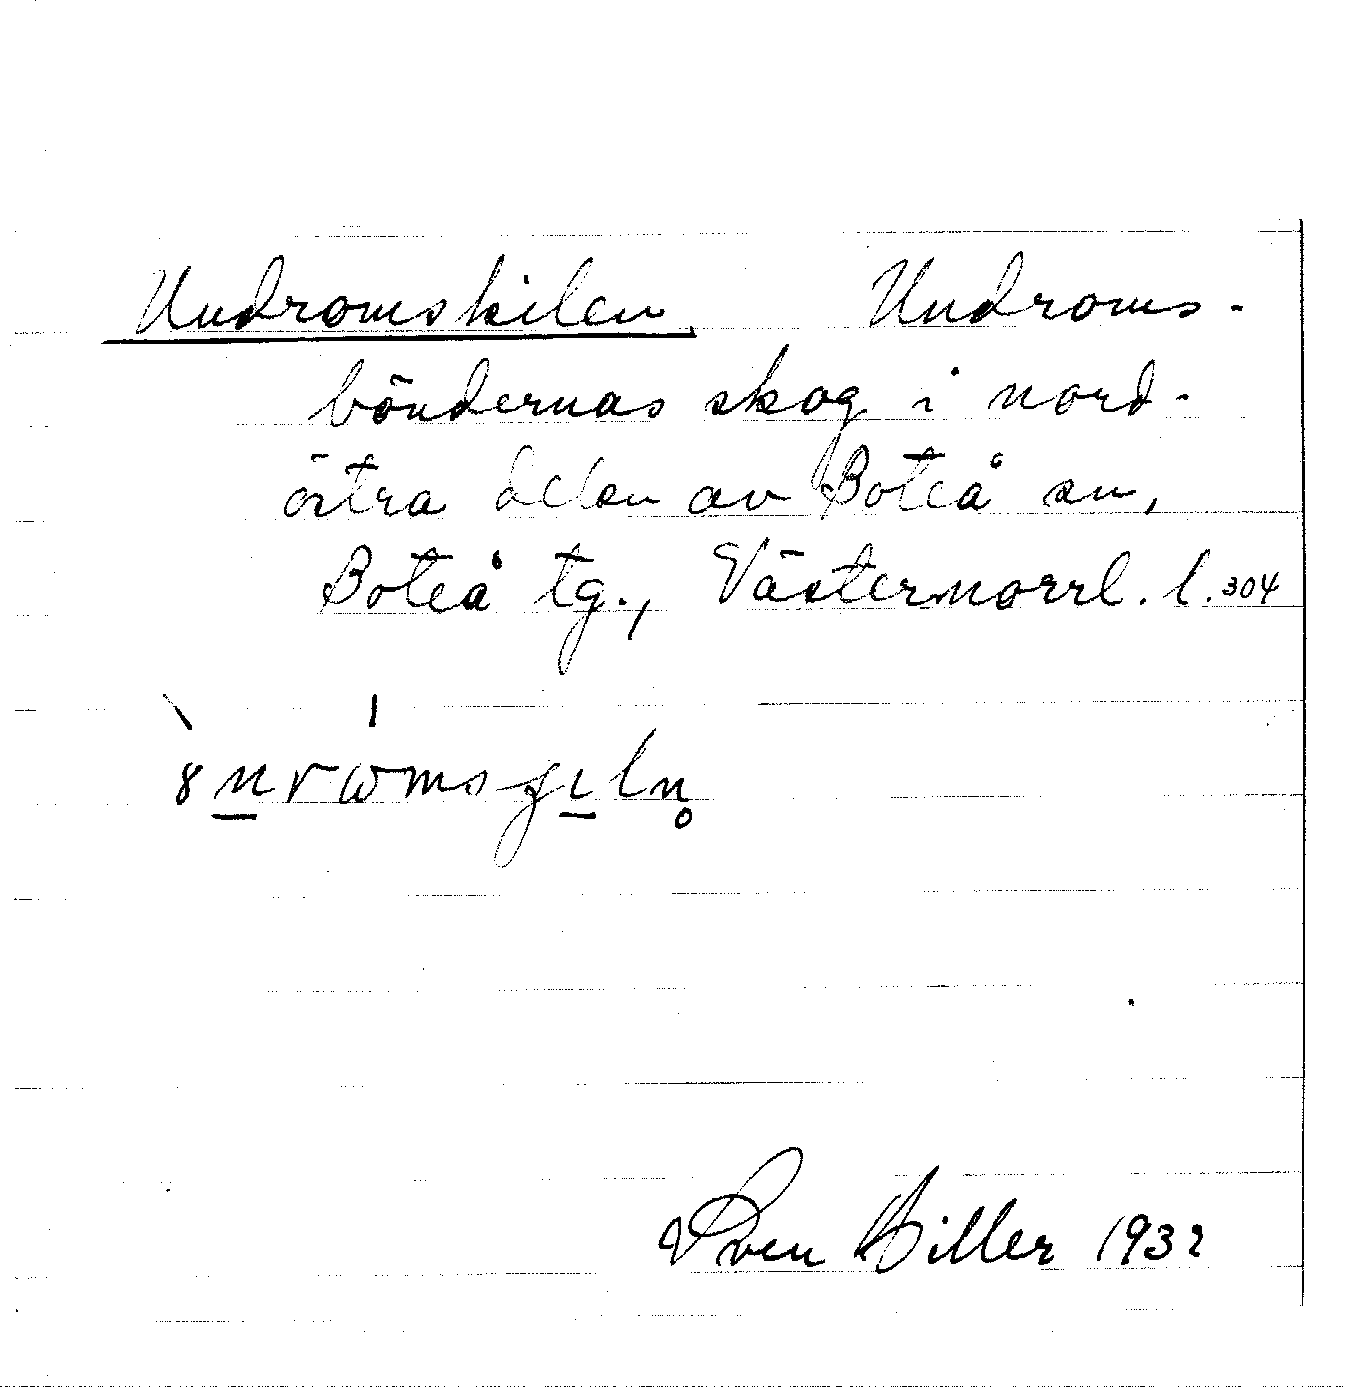 Undromskilen Undroms-
böndernas skog i nord-
östra delen av Boteå sn,
Boteå tg., Västernorrl. l. 304
Sven Hiller 1932